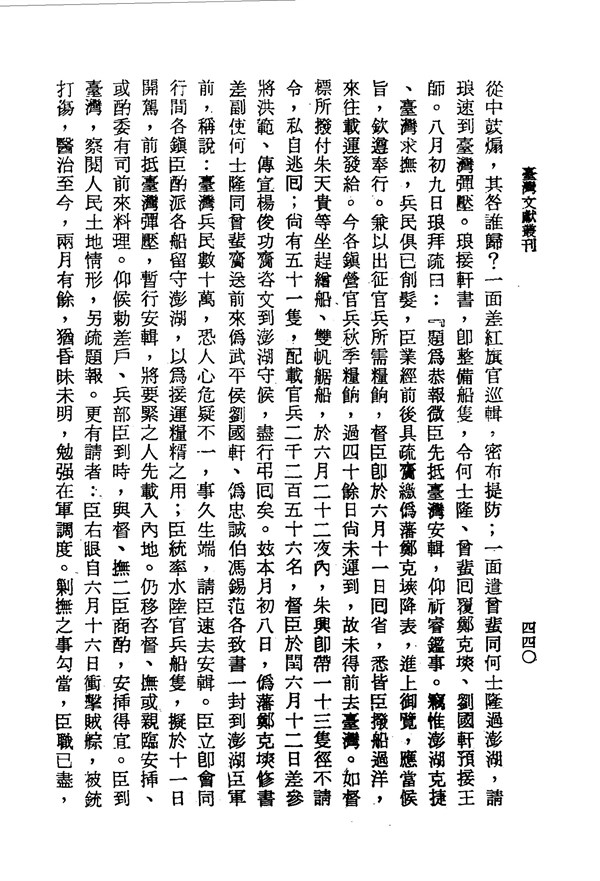 臺灣文獻叢刊
四四〇
從中鼓煽，其咎誰歸？一面差紅旗官巡輯，密布提防；一面遣曾蜚同何士隆過澎湖，請
琅速到臺灣彈壓。琅接軒書，卽整備船隻，令何士隆、曾蜚回覆鄭克塽、劉國軒預接王
師。八月初九日琅拜疏曰：『題爲恭報微臣先抵臺灣安輯，仰祈睿鑑事。竊惟澎湖克捷
、臺灣求撫，兵民俱已削髮，臣業經前後具疏齎繳僞藩鄭克塽降表，進上御覽，應當候
旨，欽遵奉行。兼以出征官兵所需糧餉，督臣卽於六月十一日回省，悉皆臣撥船過洋，
來往載運發給。今各鎭營官兵秋季糧餉，過四十餘日尙未運到，故未得前去臺灣。如督
標所撥付朱天貴等坐趕繒船、雙帆艍船，於六月二十二夜內，朱興卽帶一十三隻徑不請
令，私自逃回；尙有五十一隻，配載官兵二千二百五十六名，督臣於閏六月十二日差參
將洪範、傳宣楊俊功齎咨文到澎湖守候，盡行弔回矣。玆本月初八日，僞藩鄭克塽修書
差副使何士隆同曾蜚齎送前來僞武平侯劉國軒、僞忠誠伯馮錫范各致書一封到澎湖臣軍
前，稱說：臺灣兵民數十萬，恐人心危疑不一，事久生端，請臣速去安輯。臣立卽會同
行間各鎭臣酌派各船留守澎湖，以爲接運糧糈之用；臣統率水陸官兵船隻，擬於十一日
開駕，前抵臺灣彈壓，暫行安輯，將要緊之人先載入內地。仍移咨督、撫或親臨安插、
或酌委有司前來料理。仰候勅差戶、兵部臣到時，與督、撫二臣商酌，安插得宜。臣到
臺灣，察閱人民土地情形，另疏題報。更有請者：臣右眼自六月十六日衝擊賊䑸，被銃
打傷，醫治至今，兩月有餘，猶昏昧未明，勉强在軍調度。剿撫之事勾當，臣職已盡，